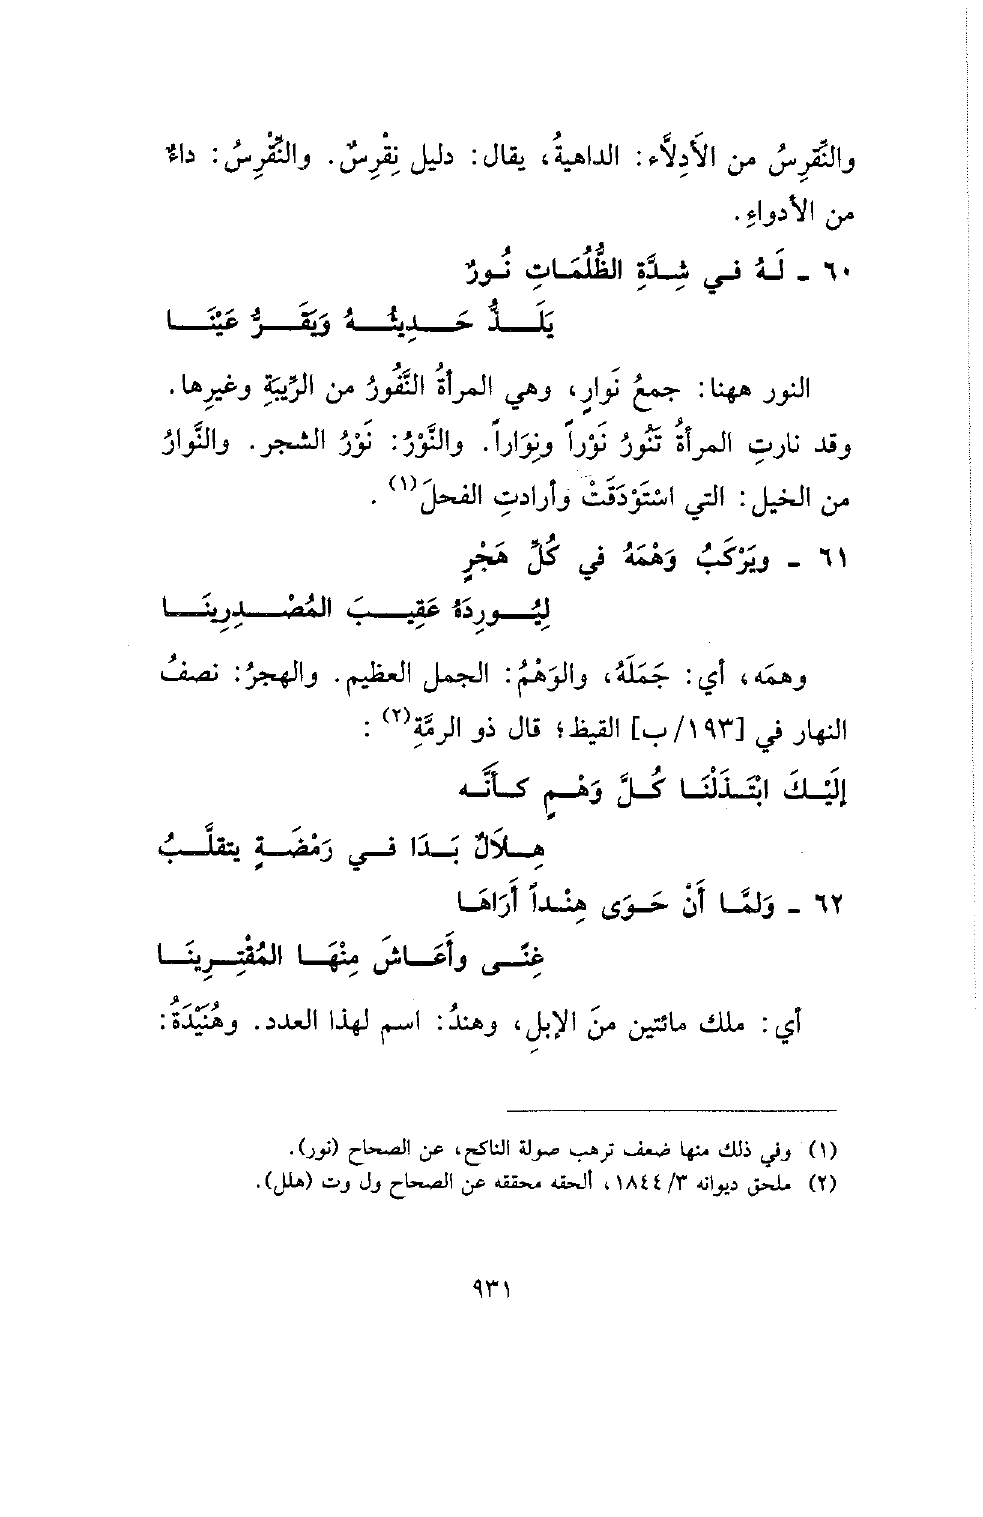 والنِّقرِسُ من الأَدِلاَّء: الداهيةُ، يقال: دليل نِقْرِسٌ. والنِّقْرِسُ: داءٌ
من الأدواءِ.
٦٠ - لَـهُ فـي شِـدَّةِ الظُّلُمَـاتِ نُـورٌ
يَلَـــذُّ حَـــدِيثُـــهُ وَيَقَـــرُّ عَيْنَـــا
النور ههنا: جمعُ نَوارٍ، وهي المرأةُ النَّفُورُ من الرِّيبَةِ وغيرِها.
وقد نارتِ المرأةُ تَنُورُ نَوْراً ونِوَاراً. والنَّوْرُ: نَوْرُ الشجر. والنَّوارُ
من الخيل: التي اسْتَوْدَقَتْ وأرادتِ الفحلَ(١).
٦١ - ويَرْكَبُ وَهْمَهُ في كُلِّ هَجْرٍ
لِيُـــورِدَهُ عَقِيـــبَ المُصْـــدِرِينَـــا
وهمَه، أي: جَمَلَهُ، والوَهْمُ: الجمل العظيم. والهجرُ: نصفُ
النهار في [١٩٣/ب] القيظ؛ قال ذو الرمَّةِ(٢):
إِلَيْـكَ ابْتَـذَلْنَـا كُـلَّ وَهْـمٍ كـأنَّـه
هِـلاَلٌ بَـدَا فـي رَمْضَـةٍ يتقلَّـبُ
٦٢ - وَلمَّـا أَنْ حَـوَى هِنْـداً أَرَاهَـا
غِنًـى وأَعَـاشَ مِنْهَـا المُقْتِـرِينَـا
أي: ملك مائتين منَ الإبلِ، وهندُ: اسم لهذا العدد. وهُنَيْدَةُ:
(١) وفي ذلك منها ضعف ترهب صولة الناكح، عن الصحاح (نور).
(٢) ملحق ديوانه ٣/ ١٨٤٤، ألحقه محققه عن الصحاح ول وت (هلل).
٩٣١